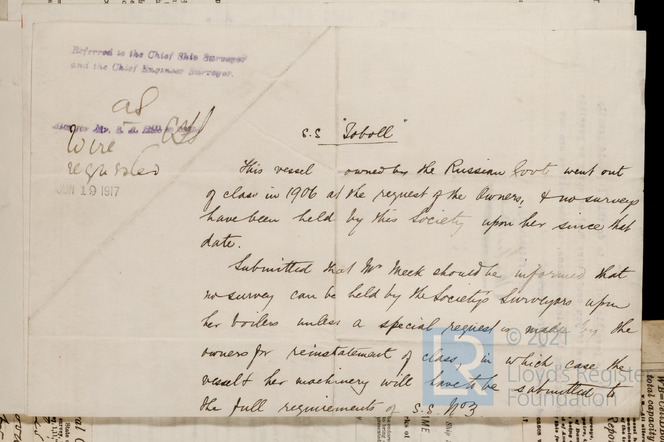 Referred to the Chief Ship Surveyor
and the Chief Engineer Surveyor.
Wire
requested
JUN 19 1917
S.S "Toboll"
This vessel owned by the Russian Govt went out
of class in 1906 at the request of the Owners, & no surveys
have been held by this Society upon her since that
date.
Submitted that Mr Meek should be informed that
no survey can be held by the Society's Surveyors upon
her boilers unless a special request is made by the
owners for reinstatement of class, in which case the
vessel & her machinery will have to be submitted to
the full requirements of S.S. No3
© 2021
LR
Lloyd's Register
Foundation